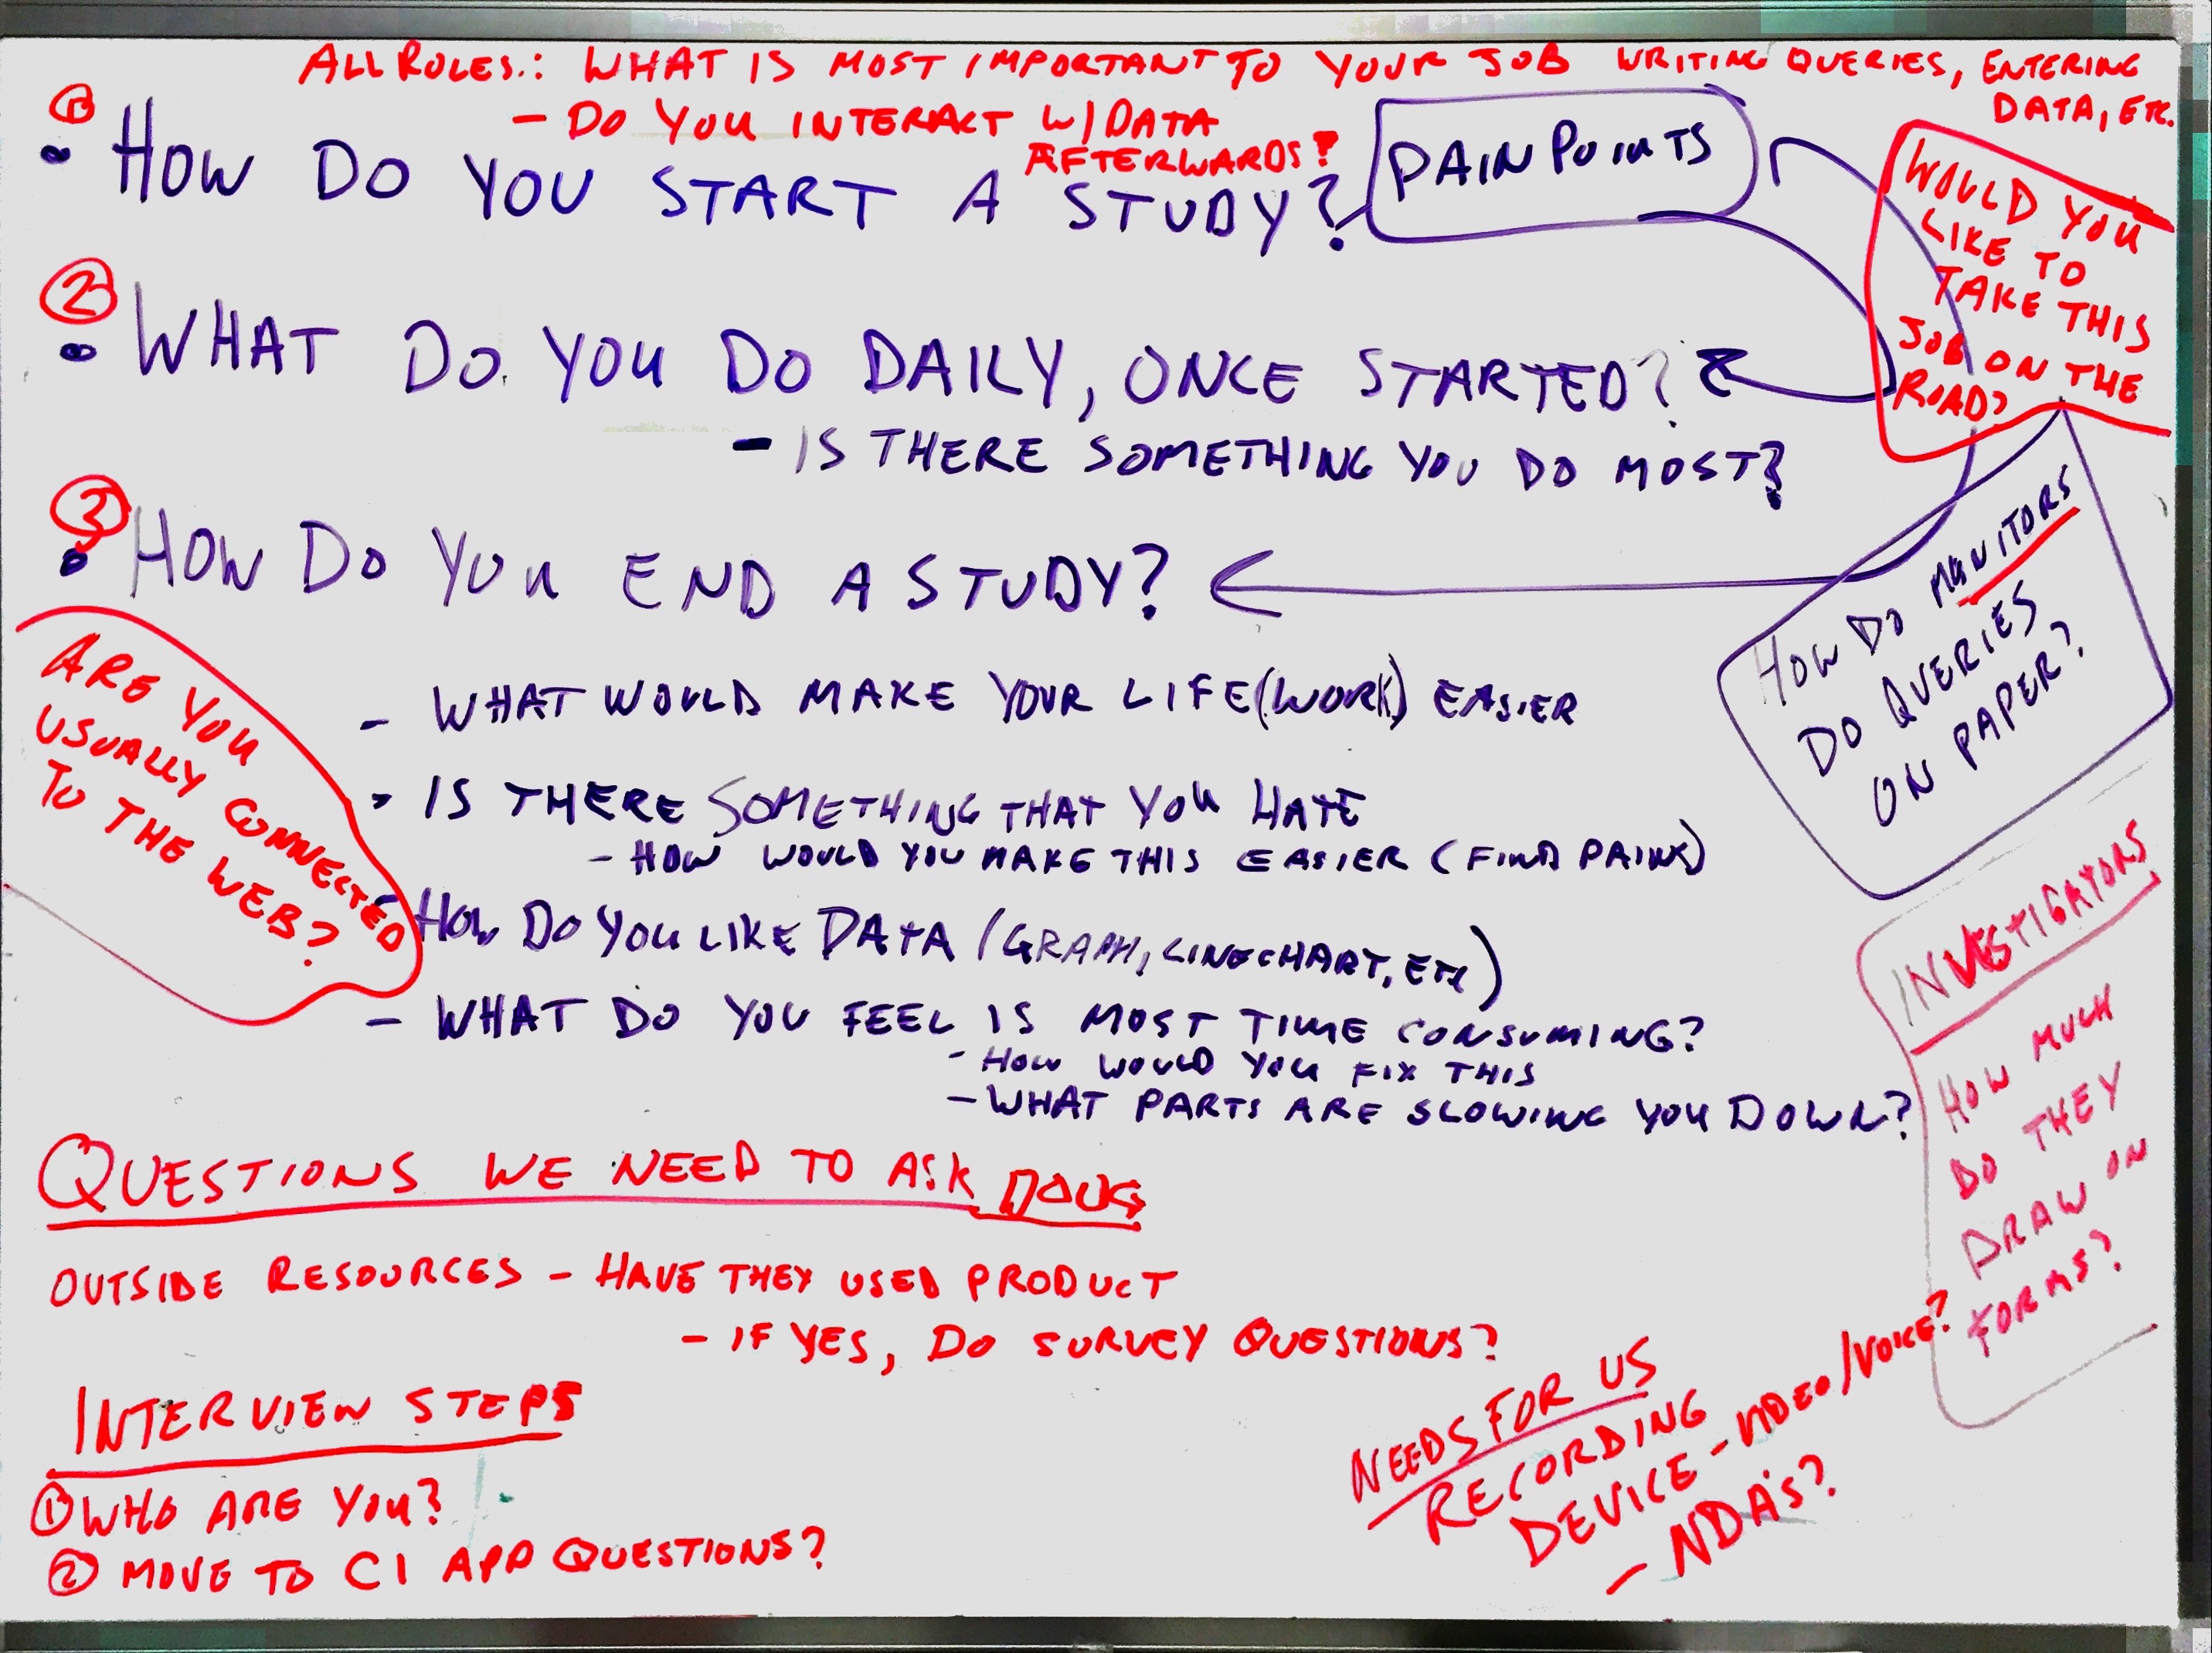 ALL ROLES.: WHAT IS MOST IMPORTANT TO YOUR JOB WRITING QUERIES, ENTERING
DATA, ETC.
- DO YOU INTERACT W/DATA
AFTERWARDS?
① • HOW DO YOU START A STUDY?
PAIN POINTS
WOULD YOU
LIKE TO
TAKE THIS
JOB ON THE
ROAD?
② • WHAT DO YOU DO DAILY, ONCE STARTED?
- IS THERE SOMETHING YOU DO MOST?
③ • HOW DO YOU END A STUDY?
HOW DO MONITORS
DO QUERIES
ON PAPER?
ARE YOU
USUALLY CONNECTED
TO THE WEB?
- WHAT WOULD MAKE YOUR LIFE (WORK) EASIER
- IS THERE SOMETHING THAT YOU HATE
- HOW WOULD YOU MAKE THIS EASIER (FIND PAINS)
- HOW DO YOU LIKE DATA (GRAPH, LINECHART, ETC)
- WHAT DO YOU FEEL IS MOST TIME CONSUMING?
- HOW WOULD YOU FIX THIS
- WHAT PARTS ARE SLOWING YOU DOWN?
INVESTIGATORS
HOW MUCH
DO THEY
DRAW ON
FORMS?
QUESTIONS WE NEED TO ASK DOUG
OUTSIDE RESOURCES - HAVE THEY USED PRODUCT
- IF YES, DO SURVEY QUESTIONS?
INTERVIEW STEPS
① WHO ARE YOU?
② MOVE TO CI APP QUESTIONS?
NEEDS FOR US
RECORDING
DEVICE - VIDEO/VOICE?
- NDA'S?